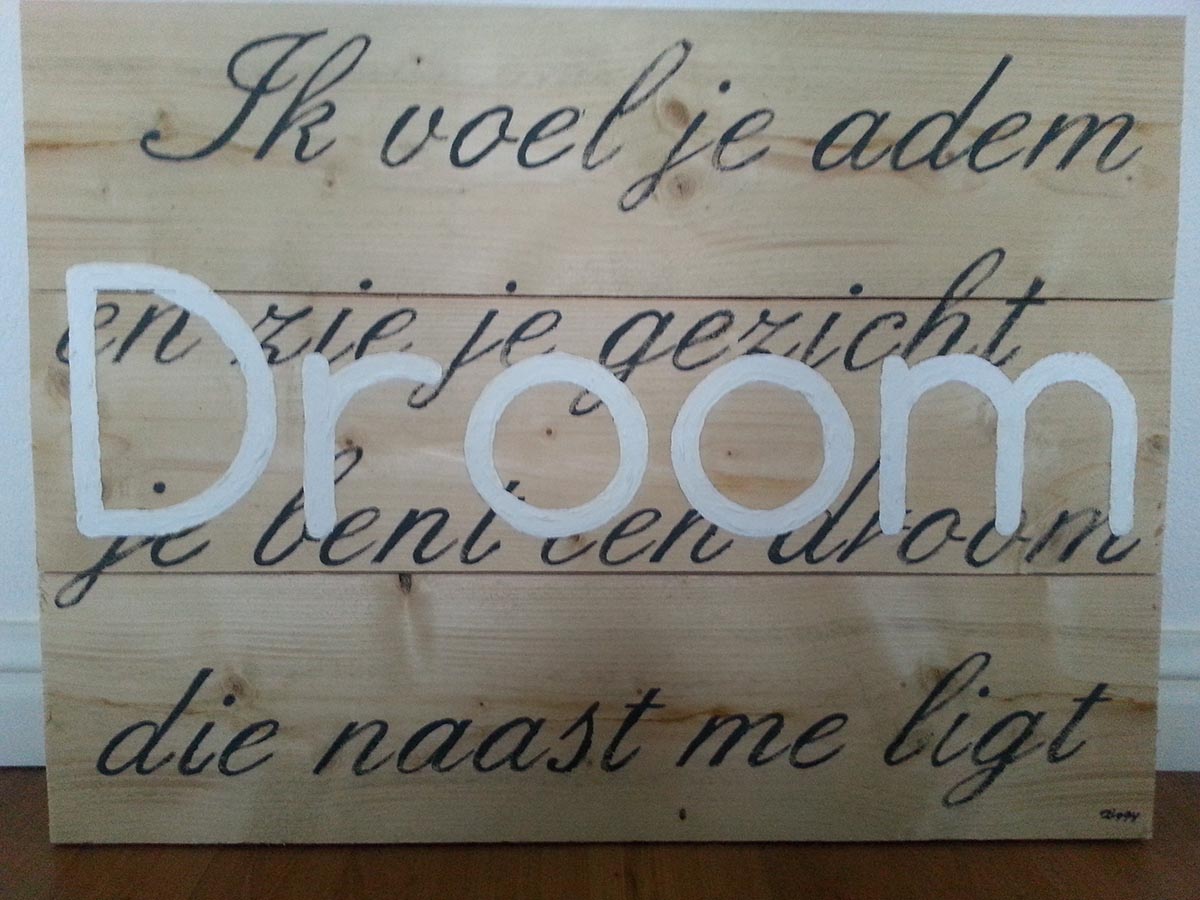 Ik voel je adem
en zie je gezicht
Droom
je bent een droom
die naast me ligt